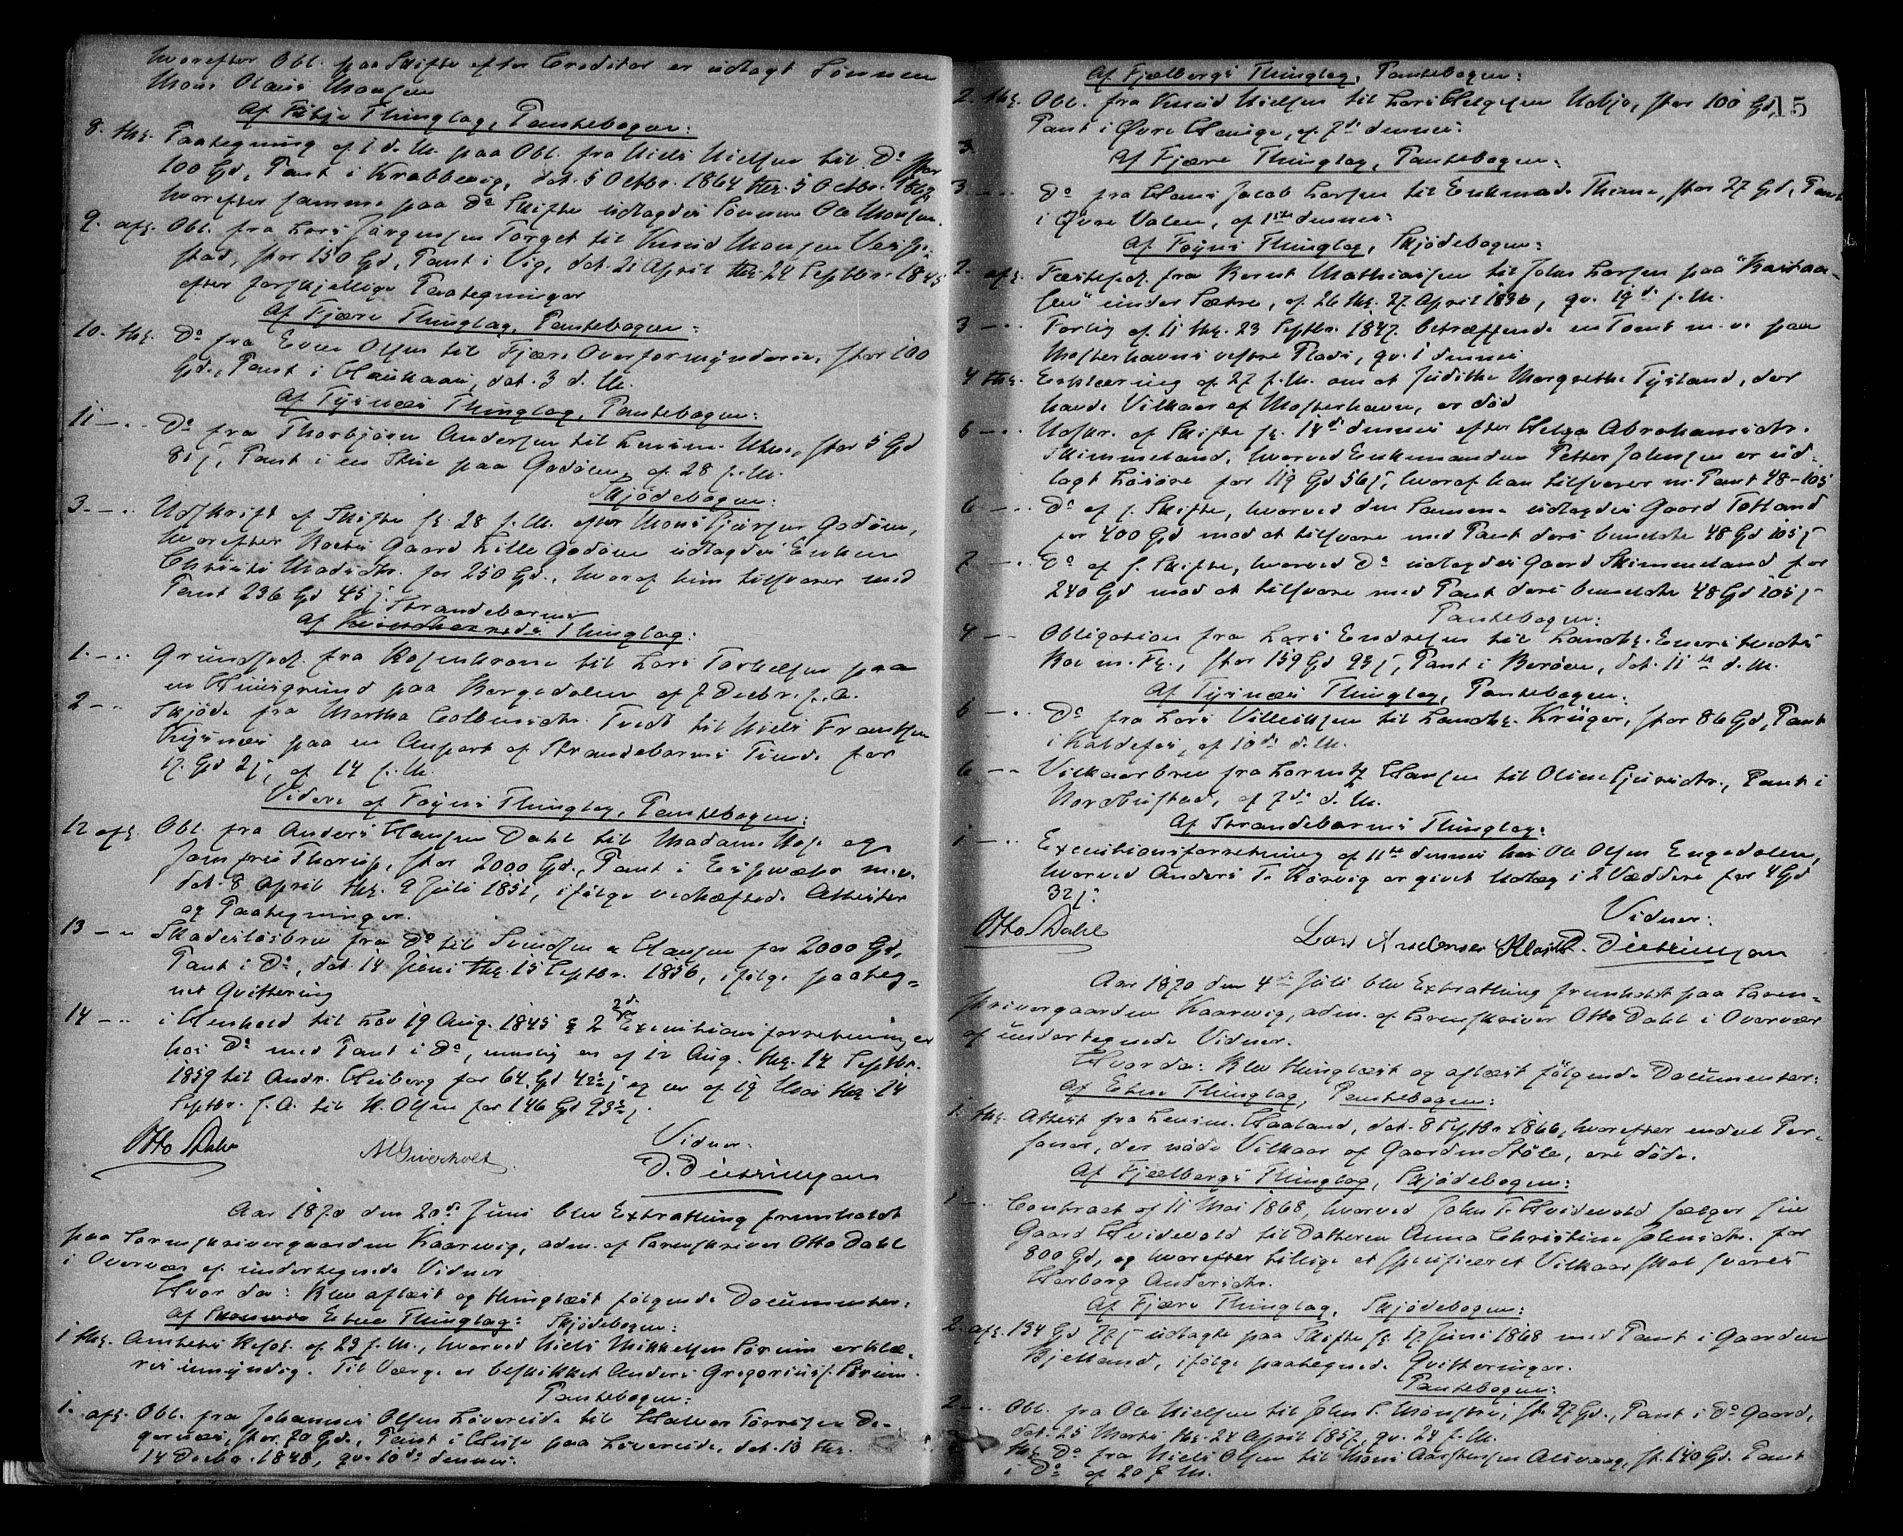 hvorefter Obl. paa Skifte efter Creditor er udlagt Sønnen
Mons Olaus Monsen
Af Fitje Thinglag, Pantebogen:
8. thl. Paategning af 1 d. M. paa Obl. fra Niels Nielsen til Do stor
100 Spd, Pant i Krabbevig, dat. 5 Octbr. 1864 thl. 5 Octbr. 1869
hvorefter samme paa Do Skifte udlagdes Sønnen Ole Monsen.
9. afl. Obl. fra Lars Jørgensen Torget til Knud Monsen Vespe-
stad, stor 150 Spd, Pant i Vig, dat. 21 April thl. 24 Septbr. 1845
efter forskjellige Paategninger
Af Fjære Thinglag, Pantebogen:
10. thl. Do fra Even Olsen til Fjære Overformynderie, stor 100
Spd., Pant i Haukaas, dat. 3 d. M.
Af Tysnæs Thinglag, Pantebogen:
11 — .. Do fra Thorbjørn Andersen til Lensm. Utne, stor 5 Spd
81 s, Pant i en Stue paa Godøen, af 28 f. M.
Skjødebogen:
3. — .. Udskrift af Skifte sl. 28 f. M. efter Mons Gjersen Godøen,
hvorefter Boets Gaard Lille Godøen udlagdes Enken
Christi Madsdtr. for 250 Spd., hvoraf hun tilsvarer med
Pant 236 Spd 45 s.
Strandebarms
Af Thinglag:
1. — .. Grundsed. fra Rosenkrone til Lars Torkelsen paa
en Huusgrund paa Bergedalen af 7 Decbr. f. A.
2 — .. Skjøde fra Martha Colbensdtr. Tvedt til Niels Frantsen
Kysnæs paa en Anpart af Strandebarms Tiende for
17 Spd 2 s, af 14 f. M.
Videre af Føyns Thinglag, Pantebogen:
12 afl. Obl. fra Anders Hansen Dahl til Madame Hess og
Jomfru Thorup, stor 2000 Spd., Pant i Espevær m.v.
dat. 8 April thl. 9 Juli 1851, ifølge vedhæftede Attester
og Paategninger.
13 — .. Skadesløsbrev fra Do til Svendsen & Hansen for 2000 Spd,
Pant i Do, dat. 14 Juni thl. 15 Septbr. 1856, ifølge paateg-
net Qvittering
14 — .. i Henhold til Lov 19 Aug. 1845 § 2 2de Executionsforretninger
hos Do med Pant i Do, nemlig en af 12 Aug. thl. 14 Septbr.
1859 til Andr. Heiberg for 64 Spd 42½ s og en af 19 Mai thl. 14
Septbr. f. A. til N. Olsen for 146 Spd 93½ s.
Vidner:
Otto Dahl M Giverholt D. Dietrichson
Aar 1870 den 20de Juni blev Extrathing fremholdt
paa Sorenskrivergaarden Kaarevig, adm. af Sorenskriver Otto Dahl
i Overvær af undertegnede Vidner
Hvor da: Blev aflæst og thinglæst følgende Documenter:
Af Etne Thinglag: Skjødebogen:
1 thl. Amtets Resol. af 23 f. M., hvorved Niels Mikkelsen Sørum erklæ-
res umyndig. Til Værge er beskikket Anders Gregoriuss. Sørum.
Pantebogen:
1. afl. Obl. fra Johannes Olsen Løvereide til Halvor Tørresen De-
gernæs, stor 70 Spd., Pant i Huse paa Løvereide, dat. 13 thl.
14 Decbr. 1848, qv. 10de dennes.
15
Af Fjælbergs Thinglag, Pantebogen:
2. thl. Obl. fra Knud Nielsen til Lars Helgesen Udbjo, stor 100 Spd,
Pant i Øvre Hauge, af 7de dennes.
3.
Af Fjære Thinglag, Pantebogen:
3. — .. Do fra Hans Jacob Larsen til Enkemad. Thieme, stor 27 Spd, Pant
i Øvre Valen, af 11te dennes
Af Føyns Thinglag, Skjødebogen:
2. afl. Fæstesed. fra Bernt Mathiassen til John Larsen paa "
" under Sætre, af 26 thl. 27 April 1836, qv. 19de f. M.
3 — .. Forlig af 11 thl. 23 Septbr. 1847. betræffende en Tomt m. v. paa
Mosterhavns vestre Plads, qv. 1 dennes
4 thl. Erklæring af 27 f. M. om at Judithe Margrethe Tysland, der
havde Vilkaar af Mosterhavn, er død
5 — .. Udskr. af Skifte sl. 14de dennes efter Helga Abrahamsdtr.
Skimmeland, hvorved Enkemanden Petter Johnsen er ud-
lagt Løsøre for 119 Spd 56 s, hvoraf han tilsvarer m. Pant 48-105
6 — .. Do af s. Skifte, hvorved den Samme udlagdes Gaard Totland
for 400 Spd mod at tilsvare med Pant deri bemeldte 48 Spd 105 s
7 — .. Do af s. Skifte, hvorved Do udlagdes Gaard Skimmeland for
240 Spd mod at tilsvare med Pant deri bemeldte 48 Spd 105 s
Pantebogen:
4 — .. Obligation fra Lars Endresen til Landhl. Enersen
Roe m. Fl., stor 159 Spd 93 s, Pant i Berøen, dat. 11te d. M.
Af Tysnæs Thinglag, Pantebogen:
5 — .. Do fra Lars Villeiksen til Landhl. Krüger, stor 86 Spd, Pant
i Kaldefos, af 10de d. M.
6 — .. Vilkaarbrev fra Lorentz Hansen til Oline Gjersdtr., Pant i
Nordbustad, af 7de d. M.
Af Strandebarms Thinglag:
1 — .. Executionsforretning af 11te dennes hos Ole Olsen Engedalen,
hvorved Anders T. Rørvig er givet Udlæg i 2 Væddere for 4 Spd
32 s.
Vidner:
Otto Dahl Lars Andersen D. Dietrichson
Aar 1870 den 4de Juli blev Extrathing fremholdt paa Soren-
skrivergaarden Kaarevig, adm. af Sorenskriver Otto Dahl i Overvær
af undertegnede Vidner.
Hvor da: Blev thinglæst og aflæst følgende Documenter:
Af Etne Thinglag, Pantebogen:
1. thl. Attest fra Lensm. Haaland, dat. 8 Septbr 1866, hvorefter endeel Per-
soner, der nøde Vilkaar af Gaarden Støle, ere døde.
Af Fjælbergs Thinglag, Skjødebogen:
1 — .. Contract af 11 Mai 1868, hvorved John T. Hvidevold sælger sin
Gaard Hvidevold til Datteren Anna Christine Johnsdtr. for
800 Spd, og hvorefter tillige et specificeret Vilkaar skal svares
Herborg Andersdtr.
Af Fjære Thinglag, Skjødebogen:
2. afl. 134 Spd 77 s udlagte paa Skifte sl. 17 Juni 1868 med Pant i Gaarden
Bjelland, ifølge paategnede Qvitteringer.
Pantebogen:
2 — .. Obl. fra Ole Nielsen til John L. Mønstre, st. 97 Spd., Pant i Do Gaard,
dat. 25 Marts thl. 24 April 1857, qv. 24 f. M.
thl. Do fra Niels Olsen til Mons Aarstensen Alsvaag, st. 140 Spd. Pant
i Do af 20 f. M.